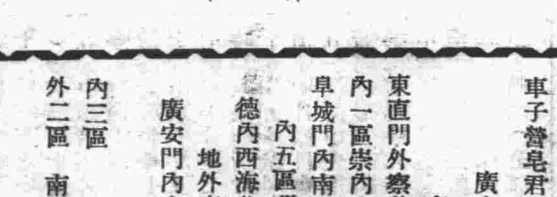 車子營皂君
廣
東直門外察
內一區崇內
阜城門內南
內五區
德內西海
地外
廣安門內
內三區
外二區 南